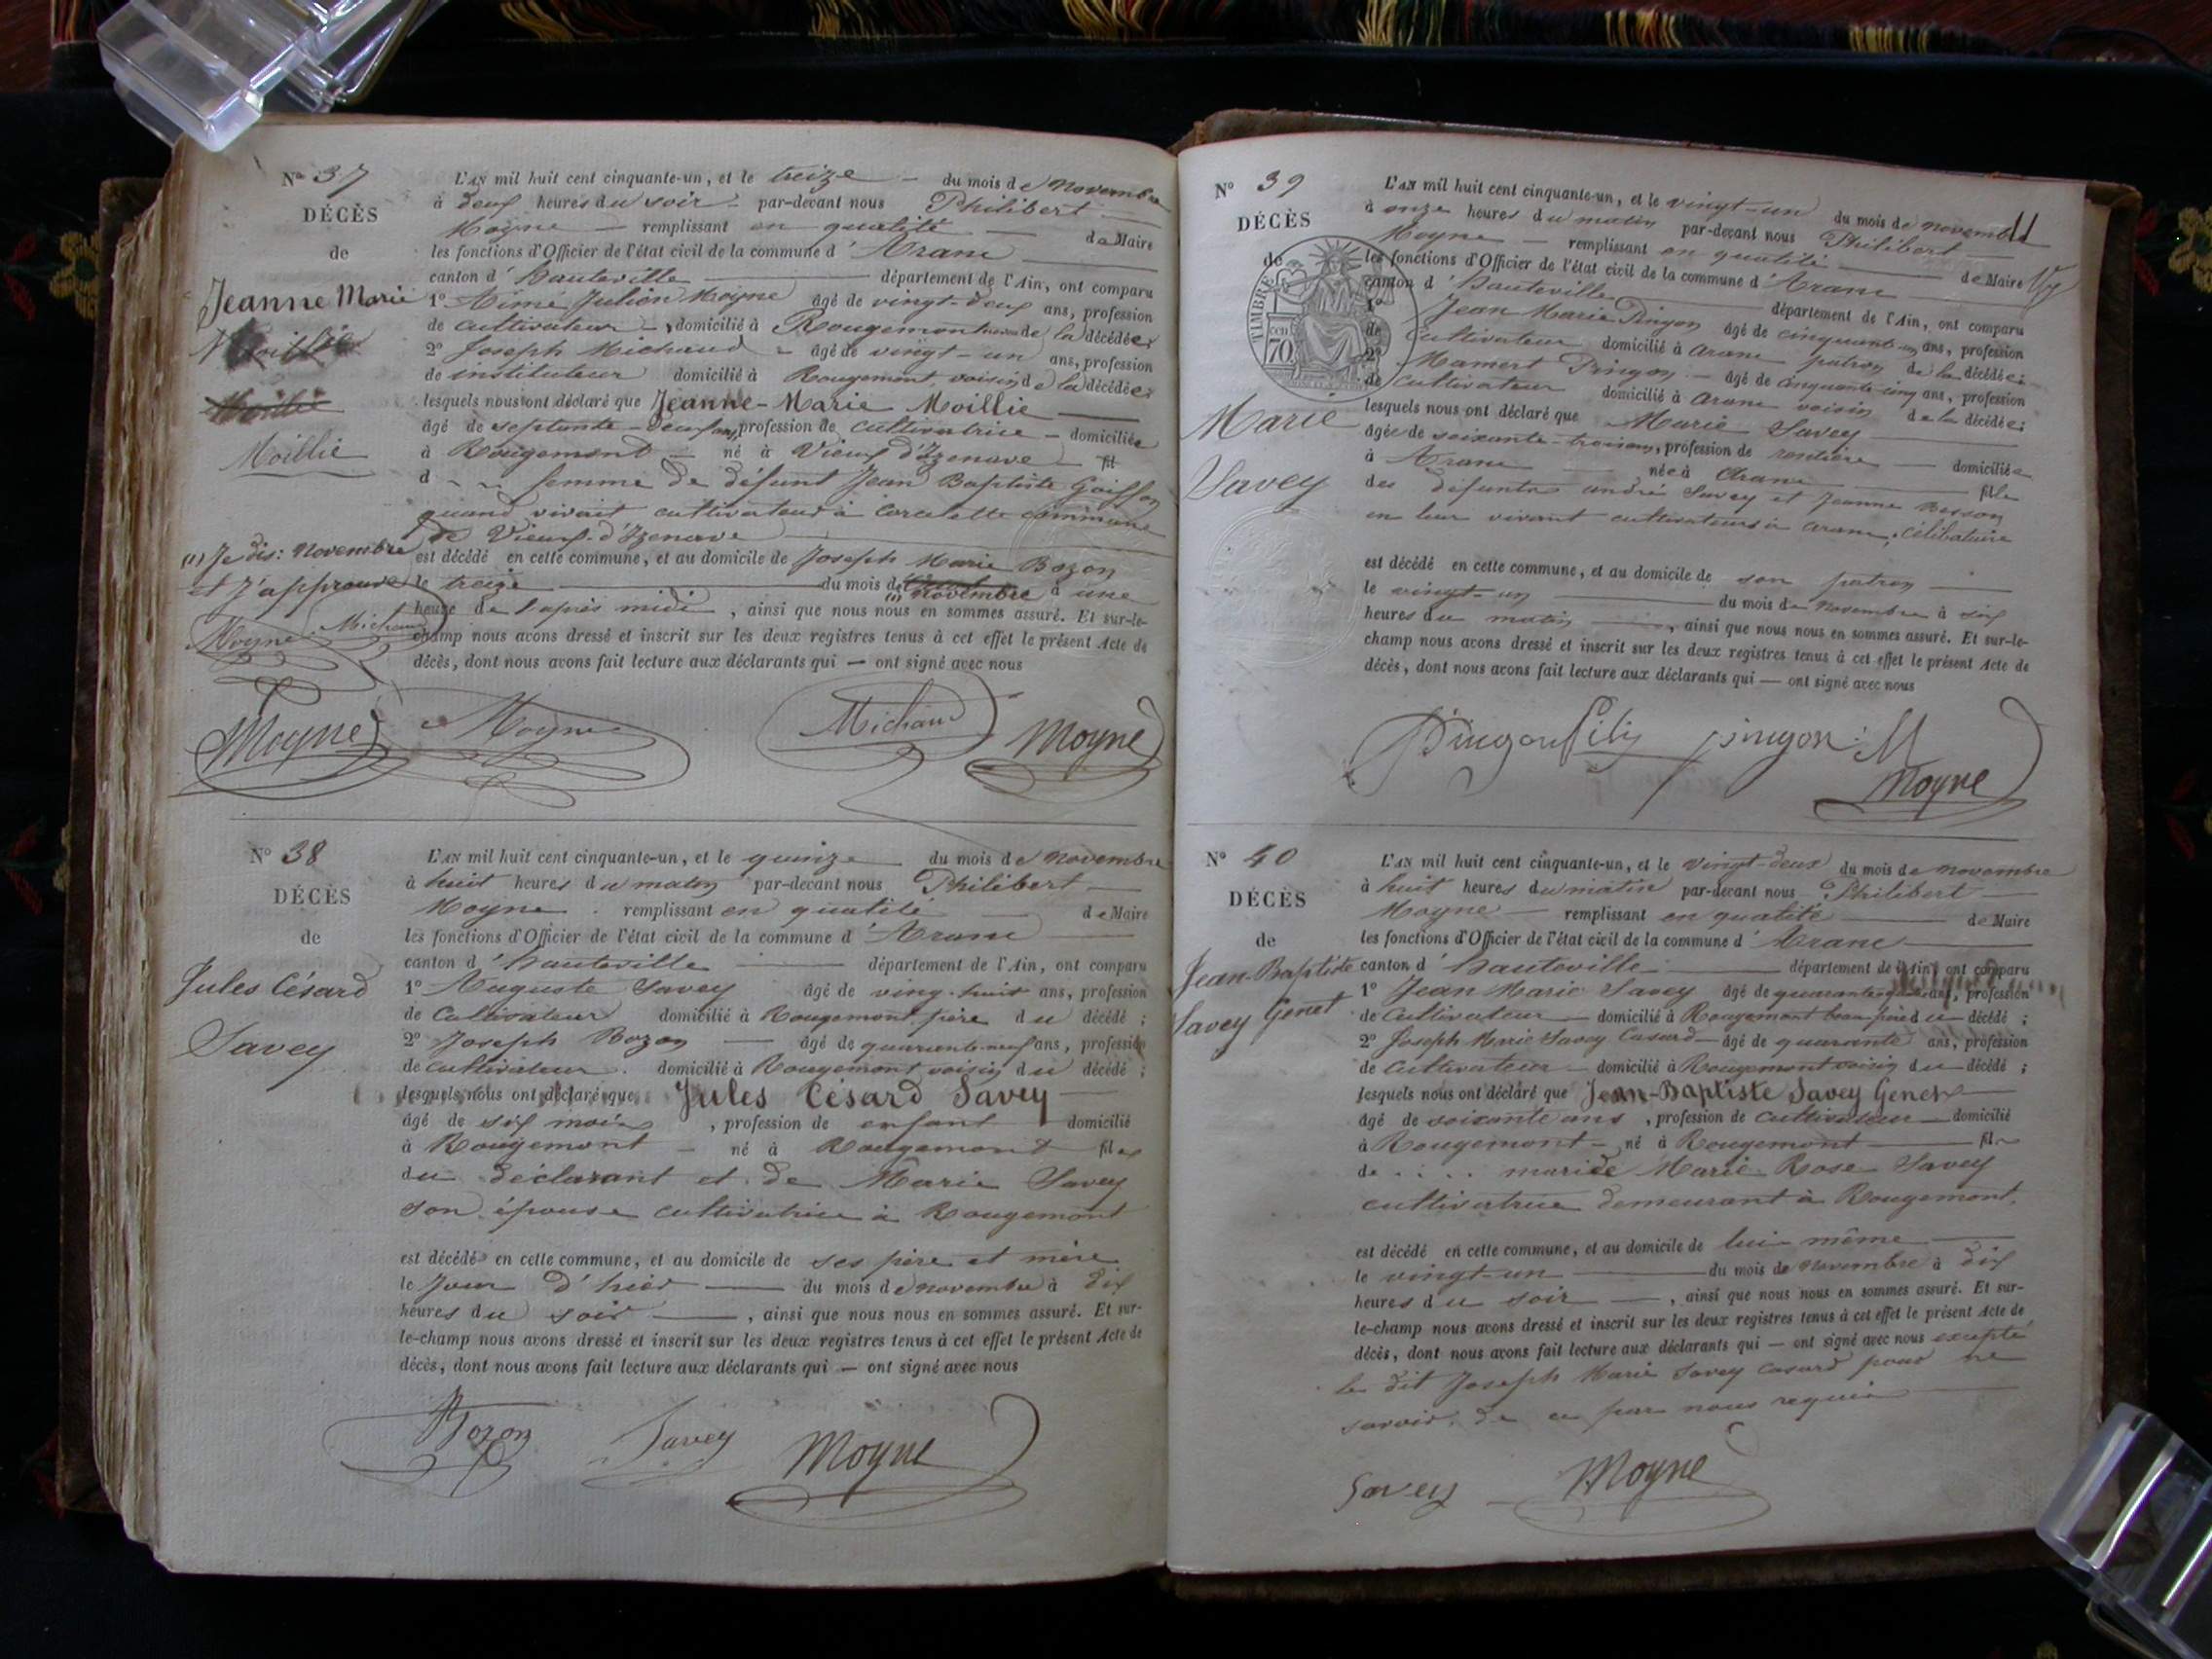 N° 37
DÉCÈS
de
Jeanne Marie
Moillié
L'AN mil huit cent cinquante-un, et le treize du mois de novembre
à deux heures du soir par-devant nous Philibert
Moyne remplissant en qualité de Maire
les fonctions d'Officier de l'état civil de la commune d'Aranc
canton d'hauteville département de l'Ain, ont comparu
1° Aimé Julien Moyne âgé de vingt-deux ans, profession
de cultivateur domicilié à Rougemont de la décédée;
2° Joseph Michaud âgé de vingt-un ans, profession
de instituteur domicilié à Rougemont, voisin de la décédée;
lesquels nous ont déclaré que Jeanne-Marie Moillié
âgé de septante-deux ans, profession de cultivatrice domiciliée
à Rougemont né à Vieux d'Izenave fil
d femme de défunt Jean Baptiste Goiffon
quand vivait cultivateur à Corcelette commune
de Vieux-d'Izenave
est décédé en cette commune, et au domicile de Joseph Marie Bozon
le treize du mois de (1) novembre à une
heure de l'après midi, ainsi que nous nous en sommes assuré. Et sur-le-
champ nous avons dressé et inscrit sur les deux registres tenus à cet effet le présent Acte de
décès, dont nous avons fait lecture aux déclarants qui — ont signé avec nous
(1) Je dis: Novembre
et j'approuve
Moyne Michaud
Moyne Moyne Michaud Moyne
N° 38
DÉCÈS
de
Jules Césard
Savey
L'AN mil huit cent cinquante-un, et le quinze du mois de novembre
à huit heures du matin par-devant nous Philibert
Moyne remplissant en qualité de Maire
les fonctions d'Officier de l'état civil de la commune d'Aranc
canton d'hauteville département de l'Ain, ont comparu
1° Auguste Savey âgé de vingt-huit ans, profession
de Cultivateur domicilié à Rougemont père du décédé;
2° Joseph Bozon âgé de quarante-neuf ans, profession
de cultivateur domicilié à Rougemont voisin du décédé;
lesquels nous ont déclaré que Jules Césard Savey
âgé de six mois, profession de enfant domicilié
à Rougemont né à Rougemont fils
du déclarant et de Marie Savey
son épouse cultivatrice à Rougemont
est décédé en cette commune, et au domicile de ses père et mère
le Jour d'hier du mois de novembre à dix
heures du soir, ainsi que nous nous en sommes assuré. Et sur-
le-champ nous avons dressé et inscrit sur les deux registres tenus à cet effet le présent Acte de
décès, dont nous avons fait lecture aux déclarants qui — ont signé avec nous
Bozon Savey Moyne
N° 39
DÉCÈS
de
TIMBRE
70
Marie
Savey
L'AN mil huit cent cinquante-un, et le vingt-un du mois de novembre 11
à onze heures du matin par-devant nous Philibert
Moyne remplissant en qualité de Maire
les fonctions d'Officier de l'état civil de la commune d'Aranc
canton d'hauteville département de l'Ain, ont comparu
1° Jean Marie Pingon âgé de cinquante-un ans, profession
de Cultivateur domicilié à Aranc patron de la décédée;
2° Mamert Pingon âgé de cinquante-cinq ans, profession
de Cultivateur domicilié à aranc voisin de la décédée;
lesquels nous ont déclaré que Marie Savey
âgée de soixante-trois ans, profession de rentière domiciliée
à Aranc née à Aranc fille
des défunts andré Savey et Jeanne Besson
en leur vivant cultivateurs à aranc, célibataire
est décédé en cette commune, et au domicile de son patron
le vingt-un du mois de novembre à six
heures du matin, ainsi que nous nous en sommes assuré. Et sur-le-
champ nous avons dressé et inscrit sur les deux registres tenus à cet effet le présent Acte de
décès, dont nous avons fait lecture aux déclarants qui — ont signé avec nous
pingon M
Moyne
N° 40
DÉCÈS
de
Jean-Baptiste
Savey Genet
L'AN mil huit cent cinquante-un, et le vingt-deux du mois de novembre
à huit heures du matin par-devant nous Philibert
Moyne remplissant en qualité de Maire
les fonctions d'Officier de l'état civil de la commune d'Aranc
canton d'hauteville département de l'Ain, ont comparu
1° Jean Marie Savey âgé de ans, profession
de Cultivateur domicilié à Rougemont beau-père du décédé;
2° Joseph Marie Savey Casard âgé de quarante ans, profession
de cultivateur domicilié à Rougemont voisin du décédé;
lesquels nous ont déclaré que Jean-Baptiste Savey Genet
âgé de soixante ans, profession de cultivateur domicilié
à Rougemont né à Rougemont fil
de mari de Marie-Rose Savey
cultivatrice demeurant à Rougemont.
est décédé en cette commune, et au domicile de lui même
le vingt-un du mois de novembre à dix
heures du soir, ainsi que nous nous en sommes assuré. Et sur-
le-champ nous avons dressé et inscrit sur les deux registres tenus à cet effet le présent Acte de
décès, dont nous avons fait lecture aux déclarants qui — ont signé avec nous excepté
le dit Joseph Marie Savey Casard pour ne
savoir, de ce par nous requis
Savey Moyne